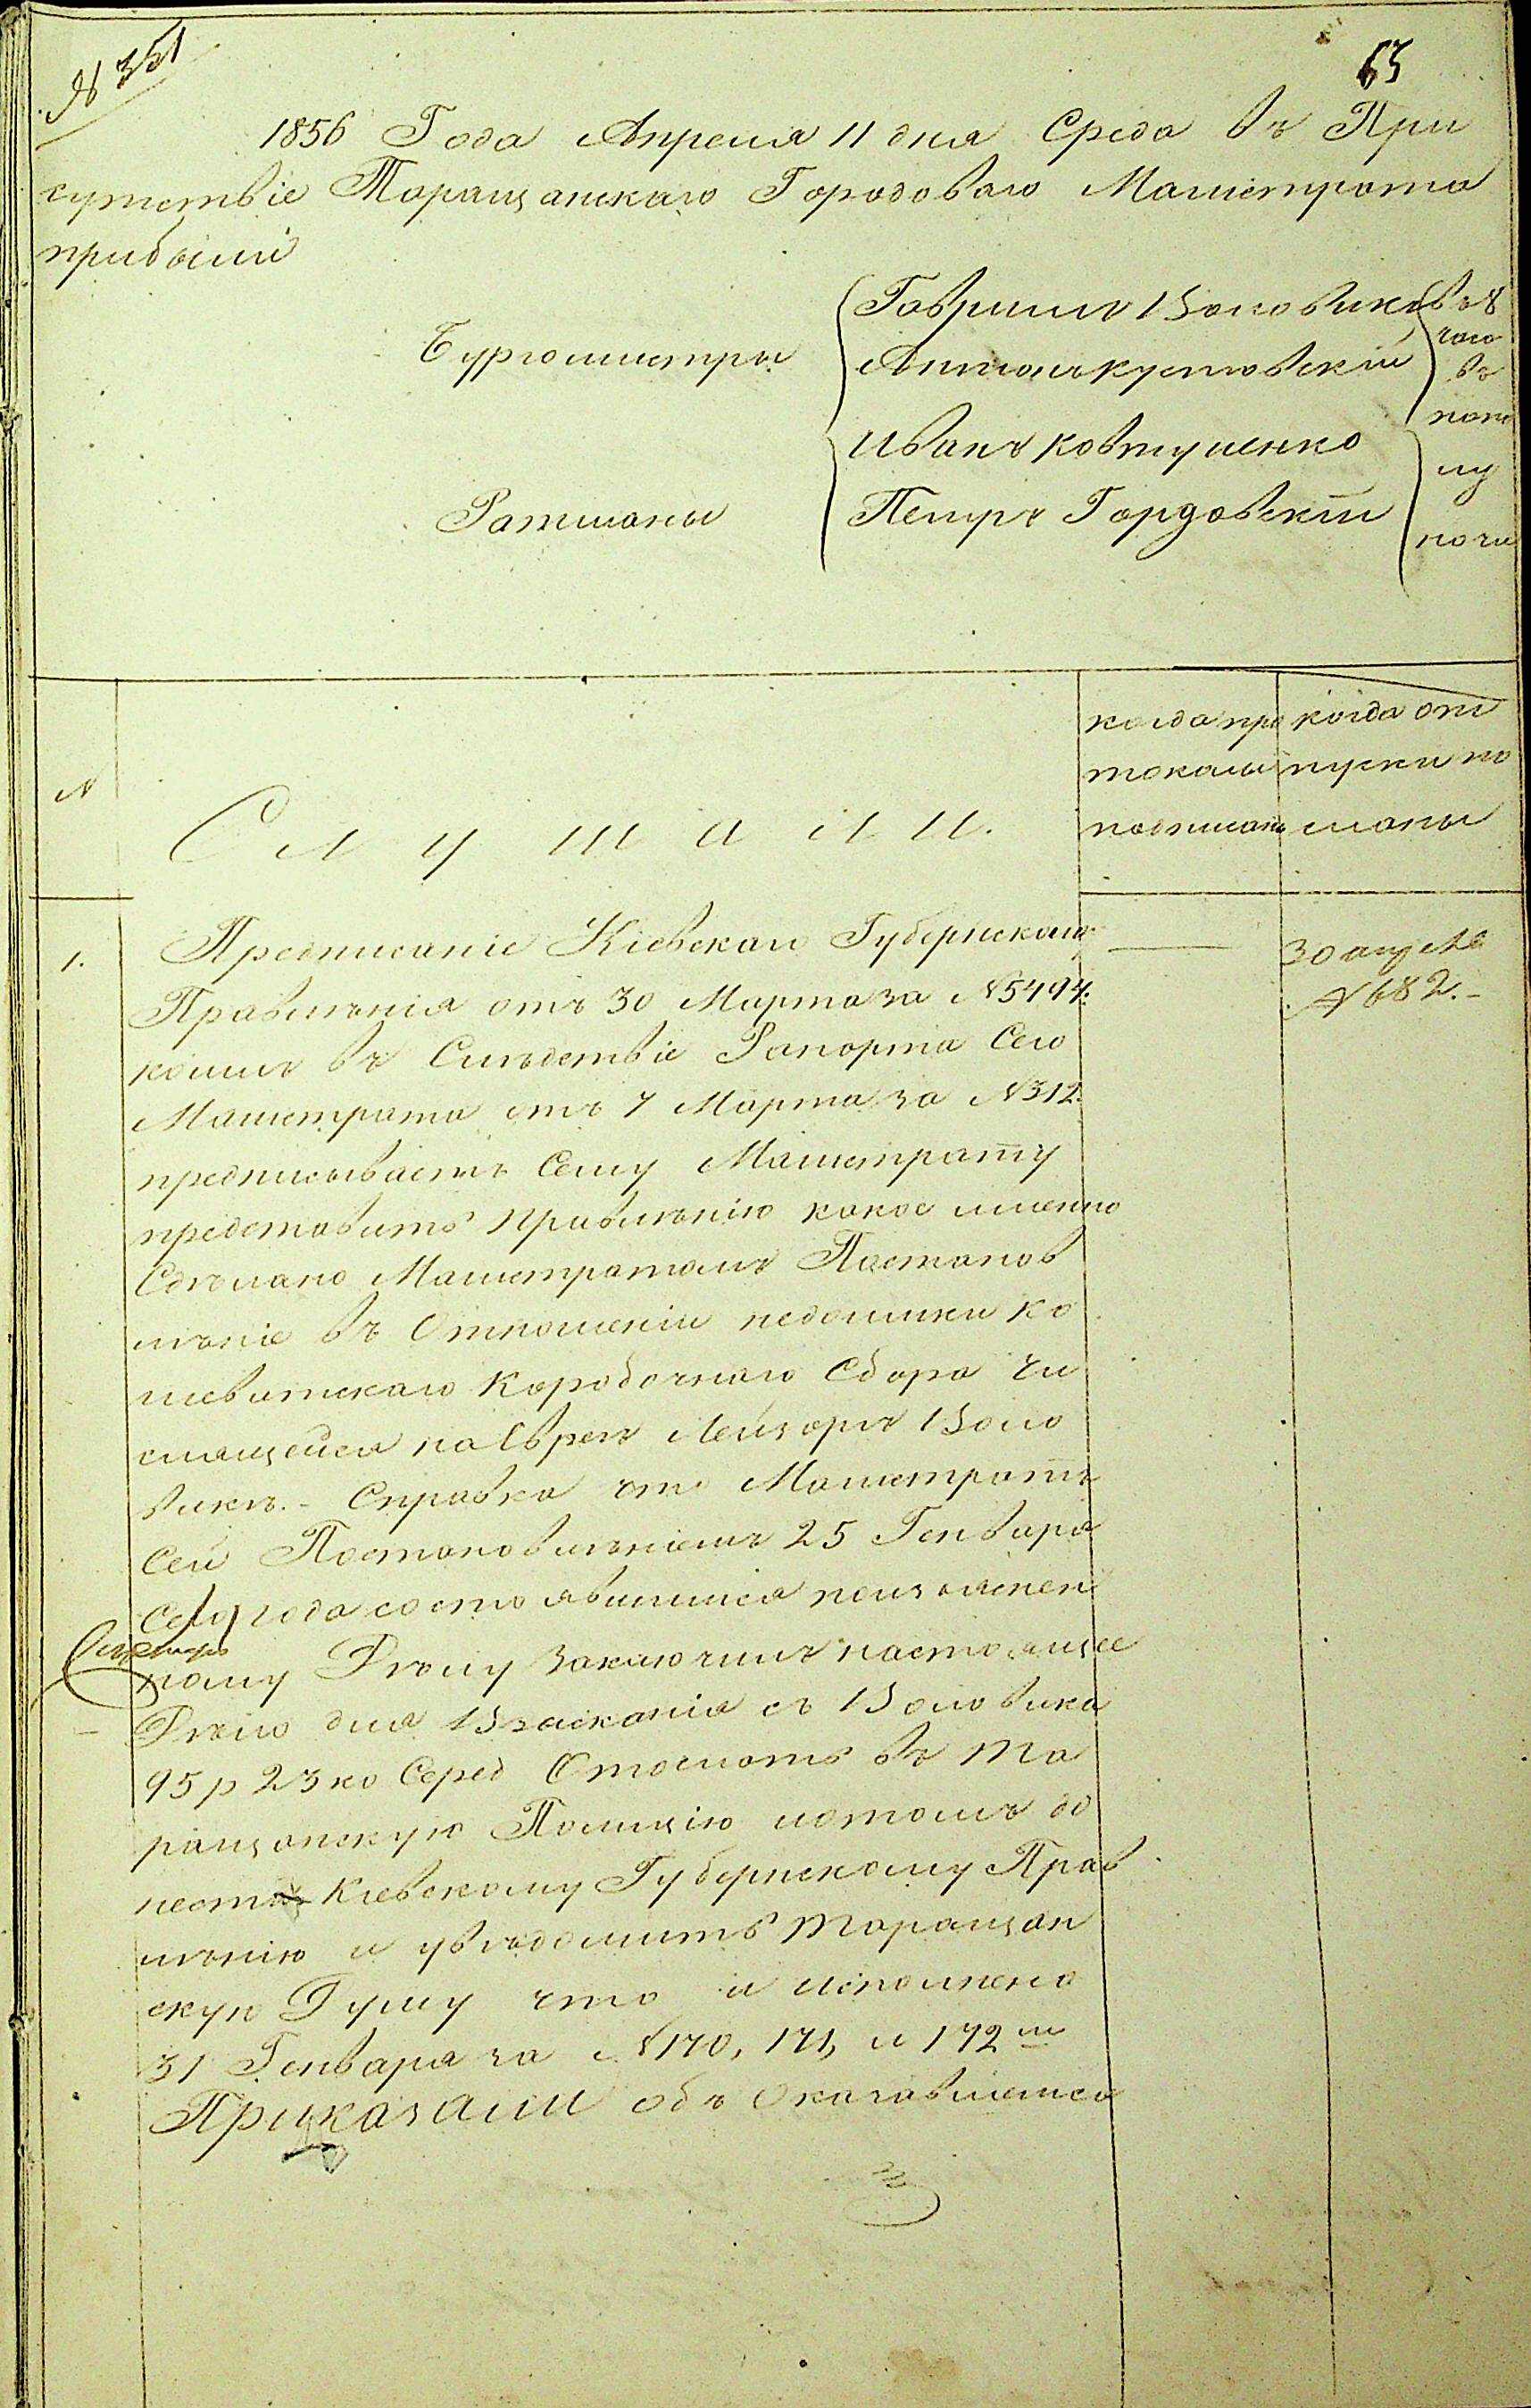 № 351
63
1856 Года Апреля 11 дня Среда въ При
сутствіе Таращанскаго Городоваго Магистрата
прибыли
Бургомистры
Гаврилъ Воловикъ
въ 8
часо
Антонъ
въ
попо
Ратманы
Иванъ Ковтуненко
лу
Петръ Гордовскій
ночи
№
Слушали.
когда про
токолы
подписаны
когда от
пуски по
сланы
1.
Предписаніе Кіевскаго Губернскаго
30
№ 682.-
Правленія отъ 30 Марта за № 5494:
коимъ въ Слѣдствіе Рапорта Сего
Магистрата отъ 7 Марта за № 312.
предписываетъ Сему Магистрату
представить Правленію какое именно
Сдѣлано Магистратомъ Постанов
лѣніе въ Отношеніи недоимки ко
Коробочнаго Сбора чи
слящейся на Евреѣ Лейзорѣ Воло
викѣ.- Справка что Магистратъ
Сей Постановленіемъ 25 Генваря
Сего года состоявшимся по
ному Дѣлу Заключилъ настоящее
Дѣло для Взысканія съ Воловика
95 р 23 ко Сереб Отослать въ Та
ращанскую Полицію о томъ до
несть Кіевскому Губернскому Прав
лѣнію и увѣдомить Таращан
скую Думу что и исполнено
31 Генваря за № 170, 171, и 172м
Приказали объ Оказавшемся